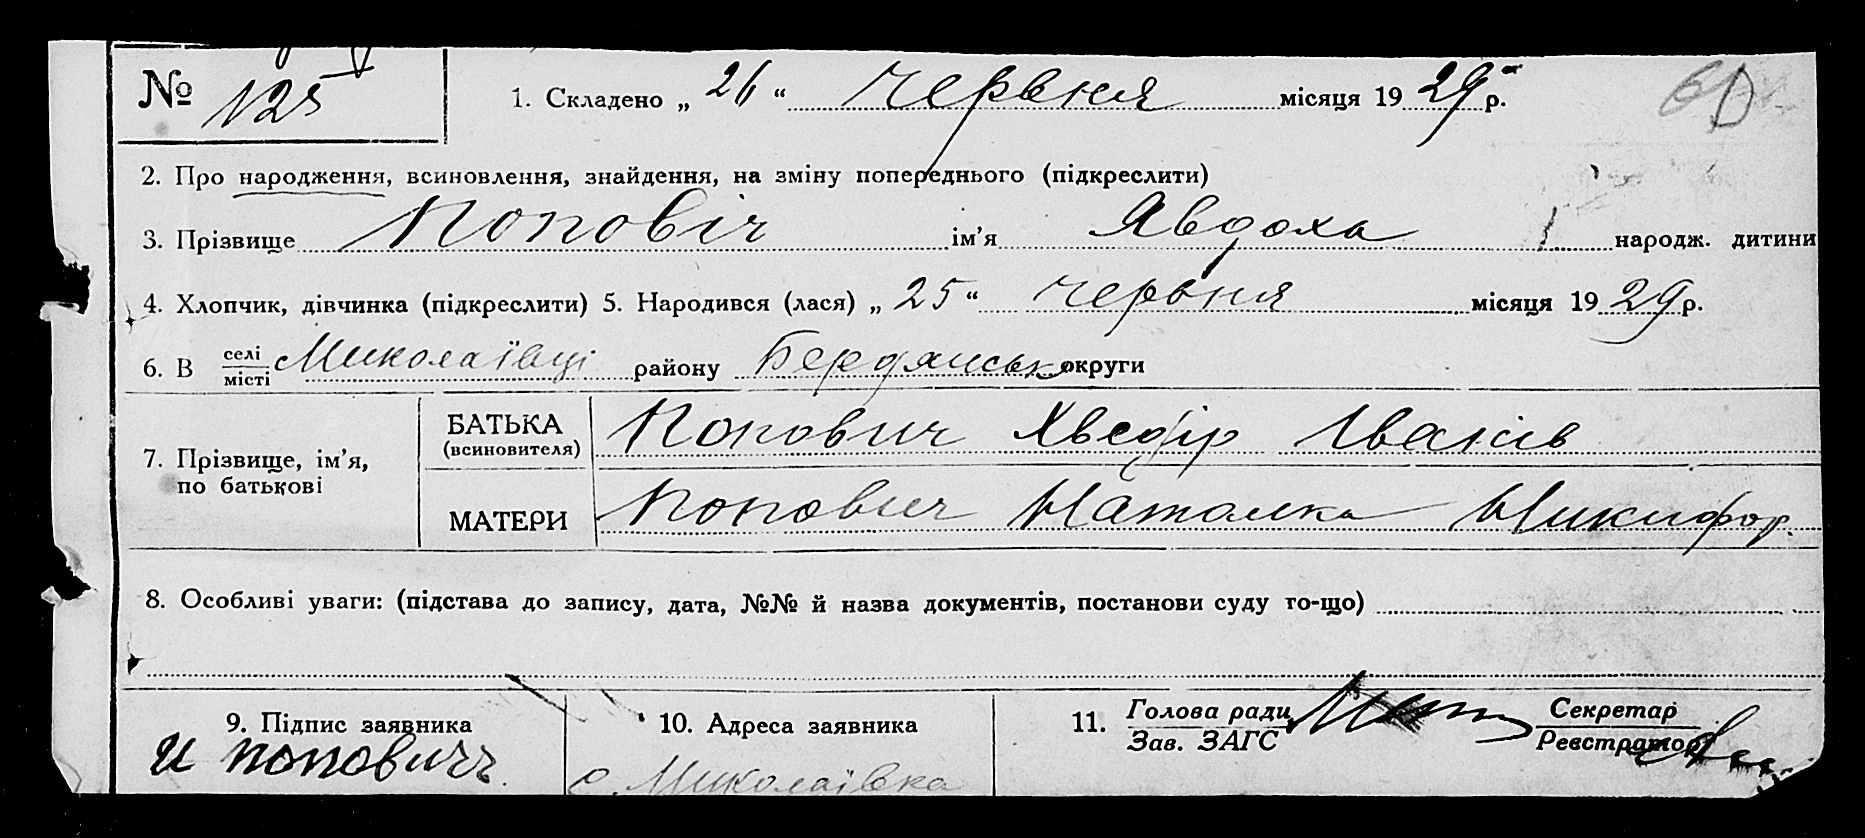 № 125 1. Складено „ 26 “ Червня місяця 19 29 р.
2. Про народження, всиновлення, знайдення, на зміну попереднього (підкреслити)
3. Прізвище Поповіч ім’я Явдоха 1 народж. дитини
4. Хлопчик, дівчинка (підкреслити) 5. Народився (лася) „ 25 “ Червня місяця 19 29 р.
6. В селі Миколаївці району Бердянськ округи
місті
7. Прізвище, ім’я, по батькові
БАТЬКА Попович Хведір Іванів
(всиновителя)
МАТЕРИ Попович Наталка Никифор.
8. Особливі уваги: (підстава до запису, дата, №№ й назва документів, постанови суду то-що)
9. Підпис заявника 10. Адреса заявника 11. Голова ради Секретар
Зав. ЗАГС Реєстратор
И Попович с. Миколаївка